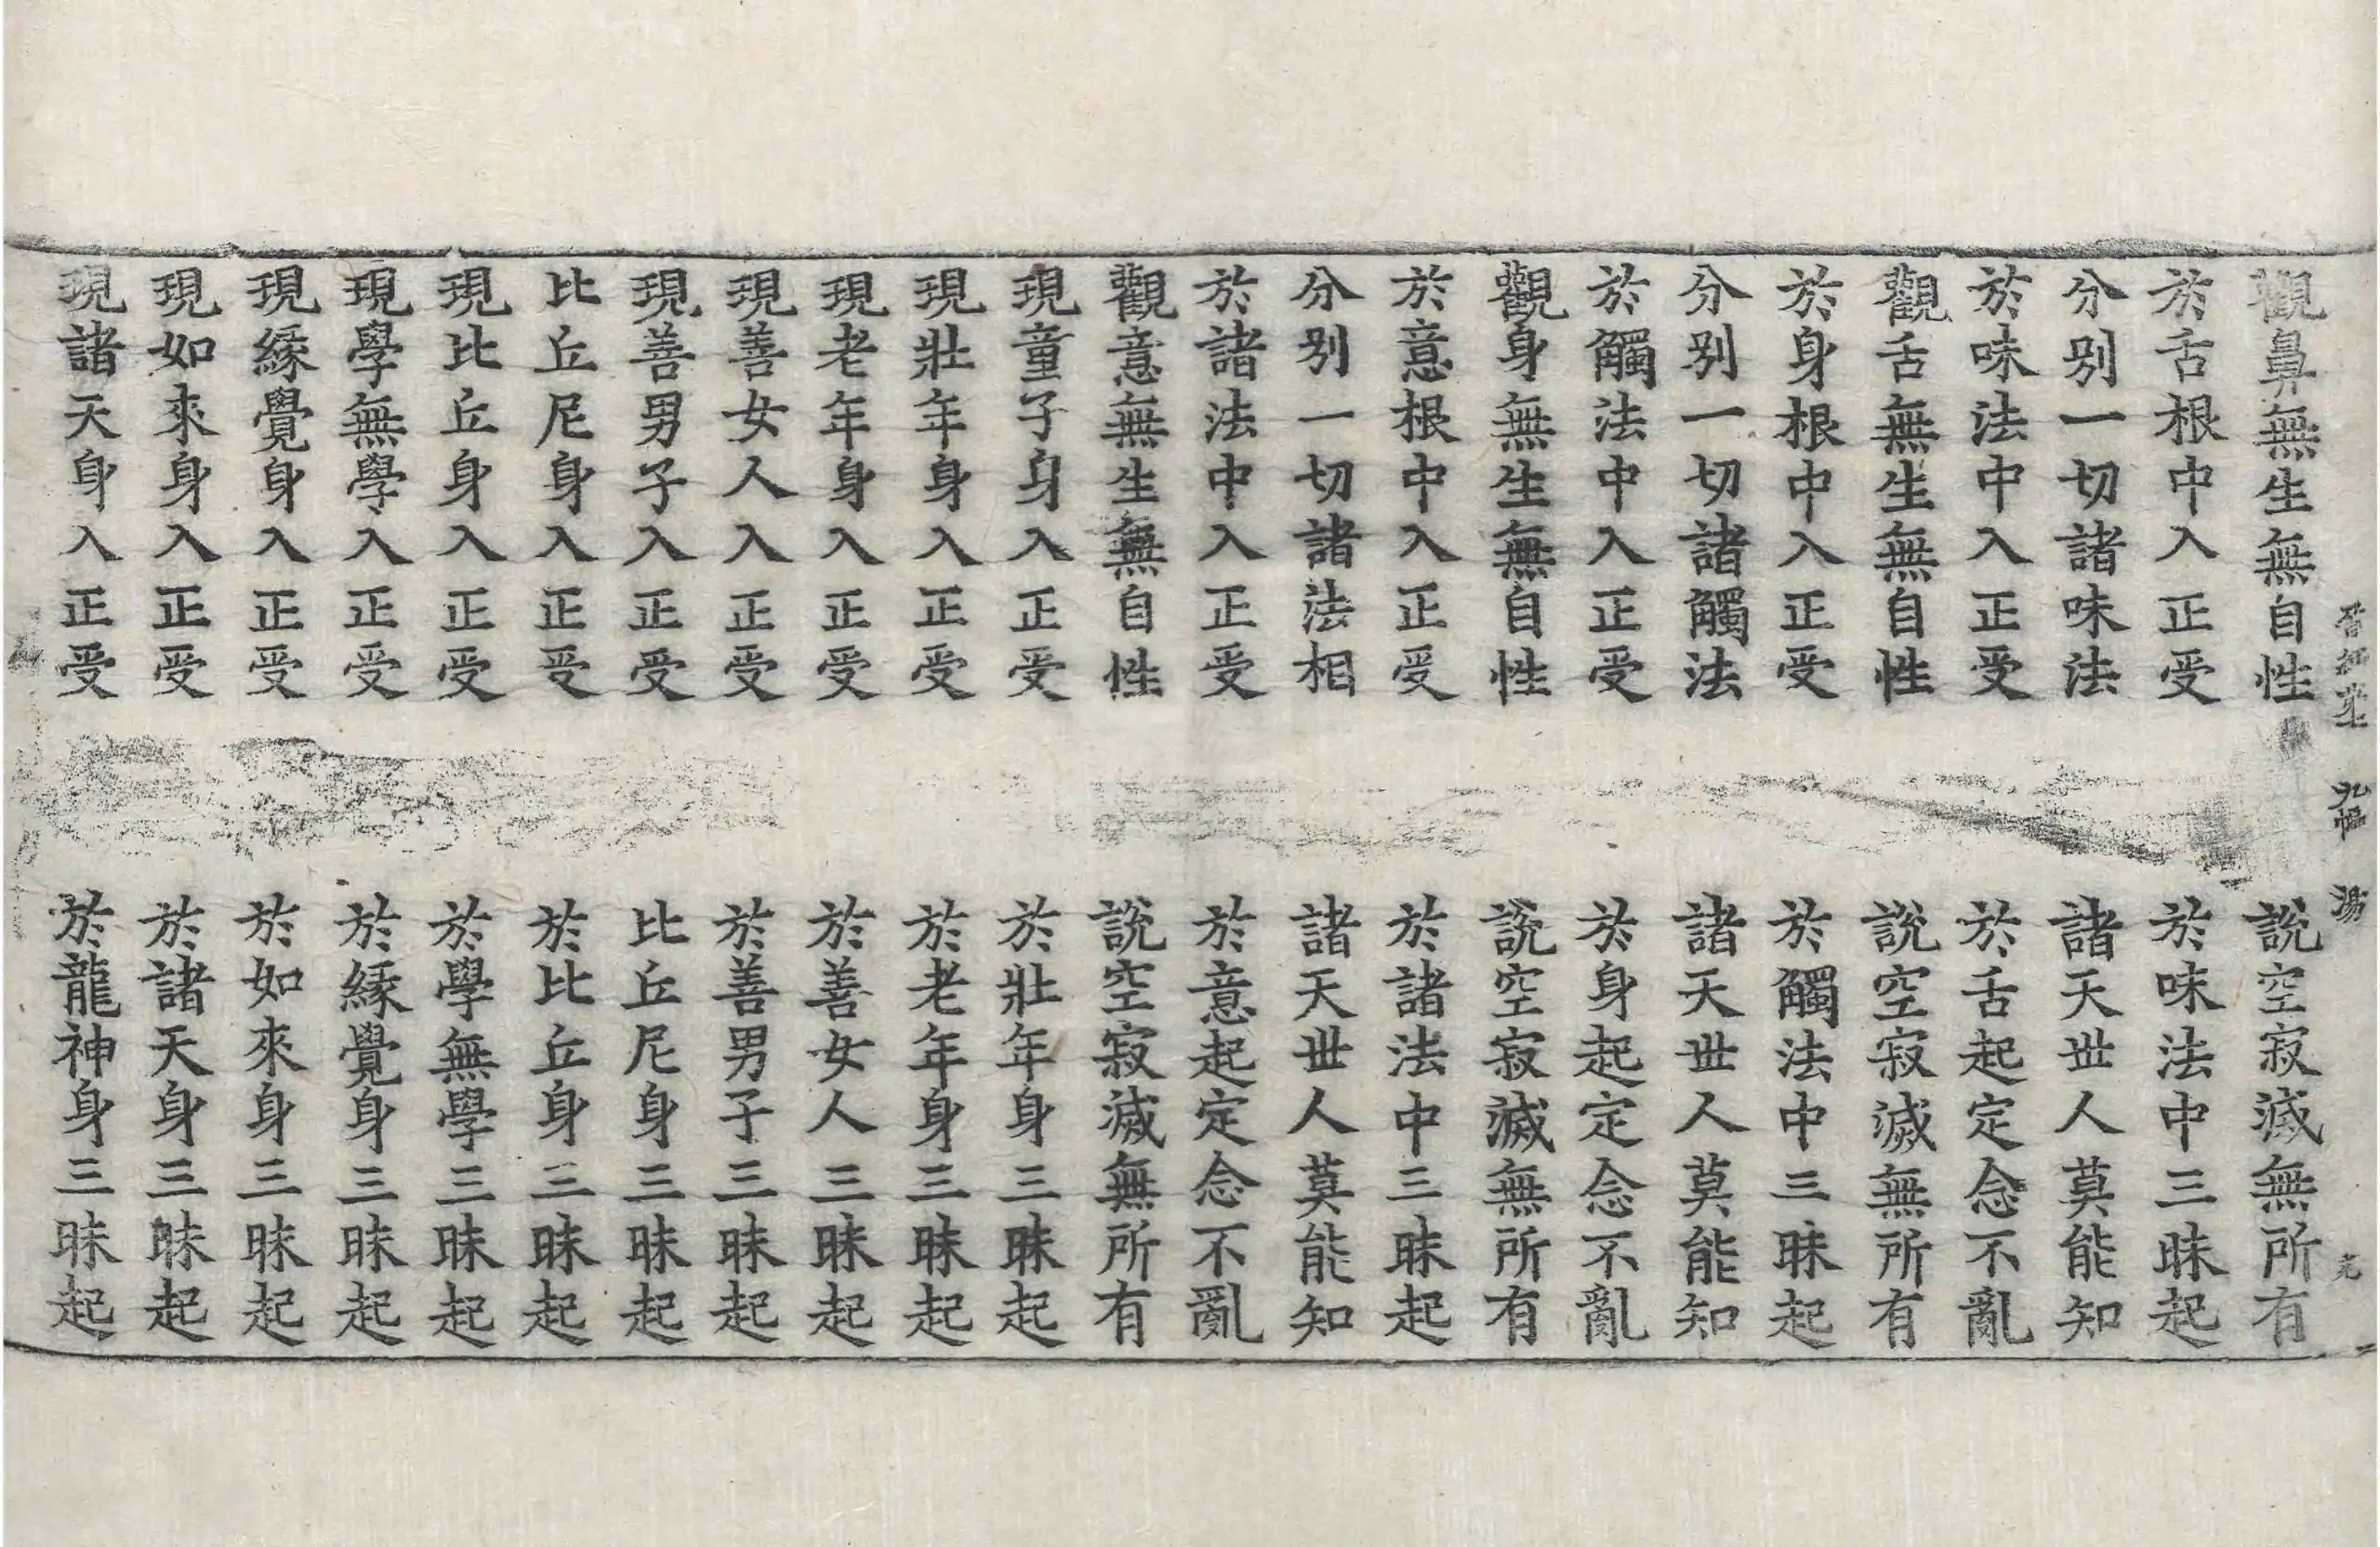 觀鼻無生無自性 說空寂滅無所有
於舌根中入正受 於味法中三昧起
分別一切諸味法 諸天世人莫能知
於味法中入正受 於舌起定念不亂
觀舌無生無自性 說空寂滅無所有
於身根中入正受 於觸法中三昧起
分別一切諸觸法 諸天世人莫能知
於觸法中入正受 於身起定念不亂
觀身無生無自性 說空寂滅無所有
於意根中入正受 於諸法中三昧起
分別一切諸法相 諸天世人莫能知
於諸法中入正受 於意起定念不亂
觀意無生無自性 說空寂滅無所有
現童子身入正受 於壯年身三昧起
現壯年身入正受 於老年身三昧起
現老年身入正受 於善女人三昧起
現善女人入正受 於善男子三昧起
現善男子入正受 比丘尼身三昧起
比丘尼身入正受 於比丘身三昧起
現比丘身入正受 於學無學三昧起
現學無學入正受 於緣覺身三昧起
現緣覺身入正受 於如來身三昧起
現如來身入正受 於諸天身三昧起
現諸天身入正受 於龍神身三昧起